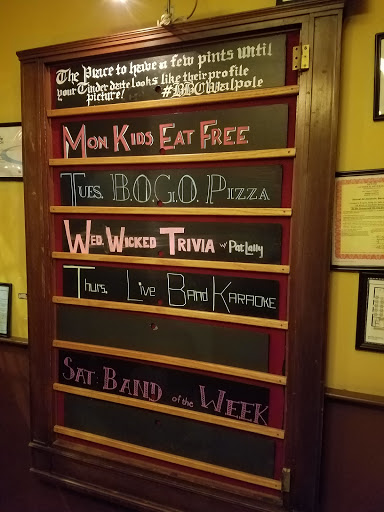 The Place to have a few pints until
your Tinder date looks like their profile
picture! #BBCWalpole
Mon. Kids Eat Free
Tues. B.O.G.O. Pizza
Wed. Wicked Trivia w/ Pat Lally
Thurs. Live Band Karaoke
Sat: Band of the Week